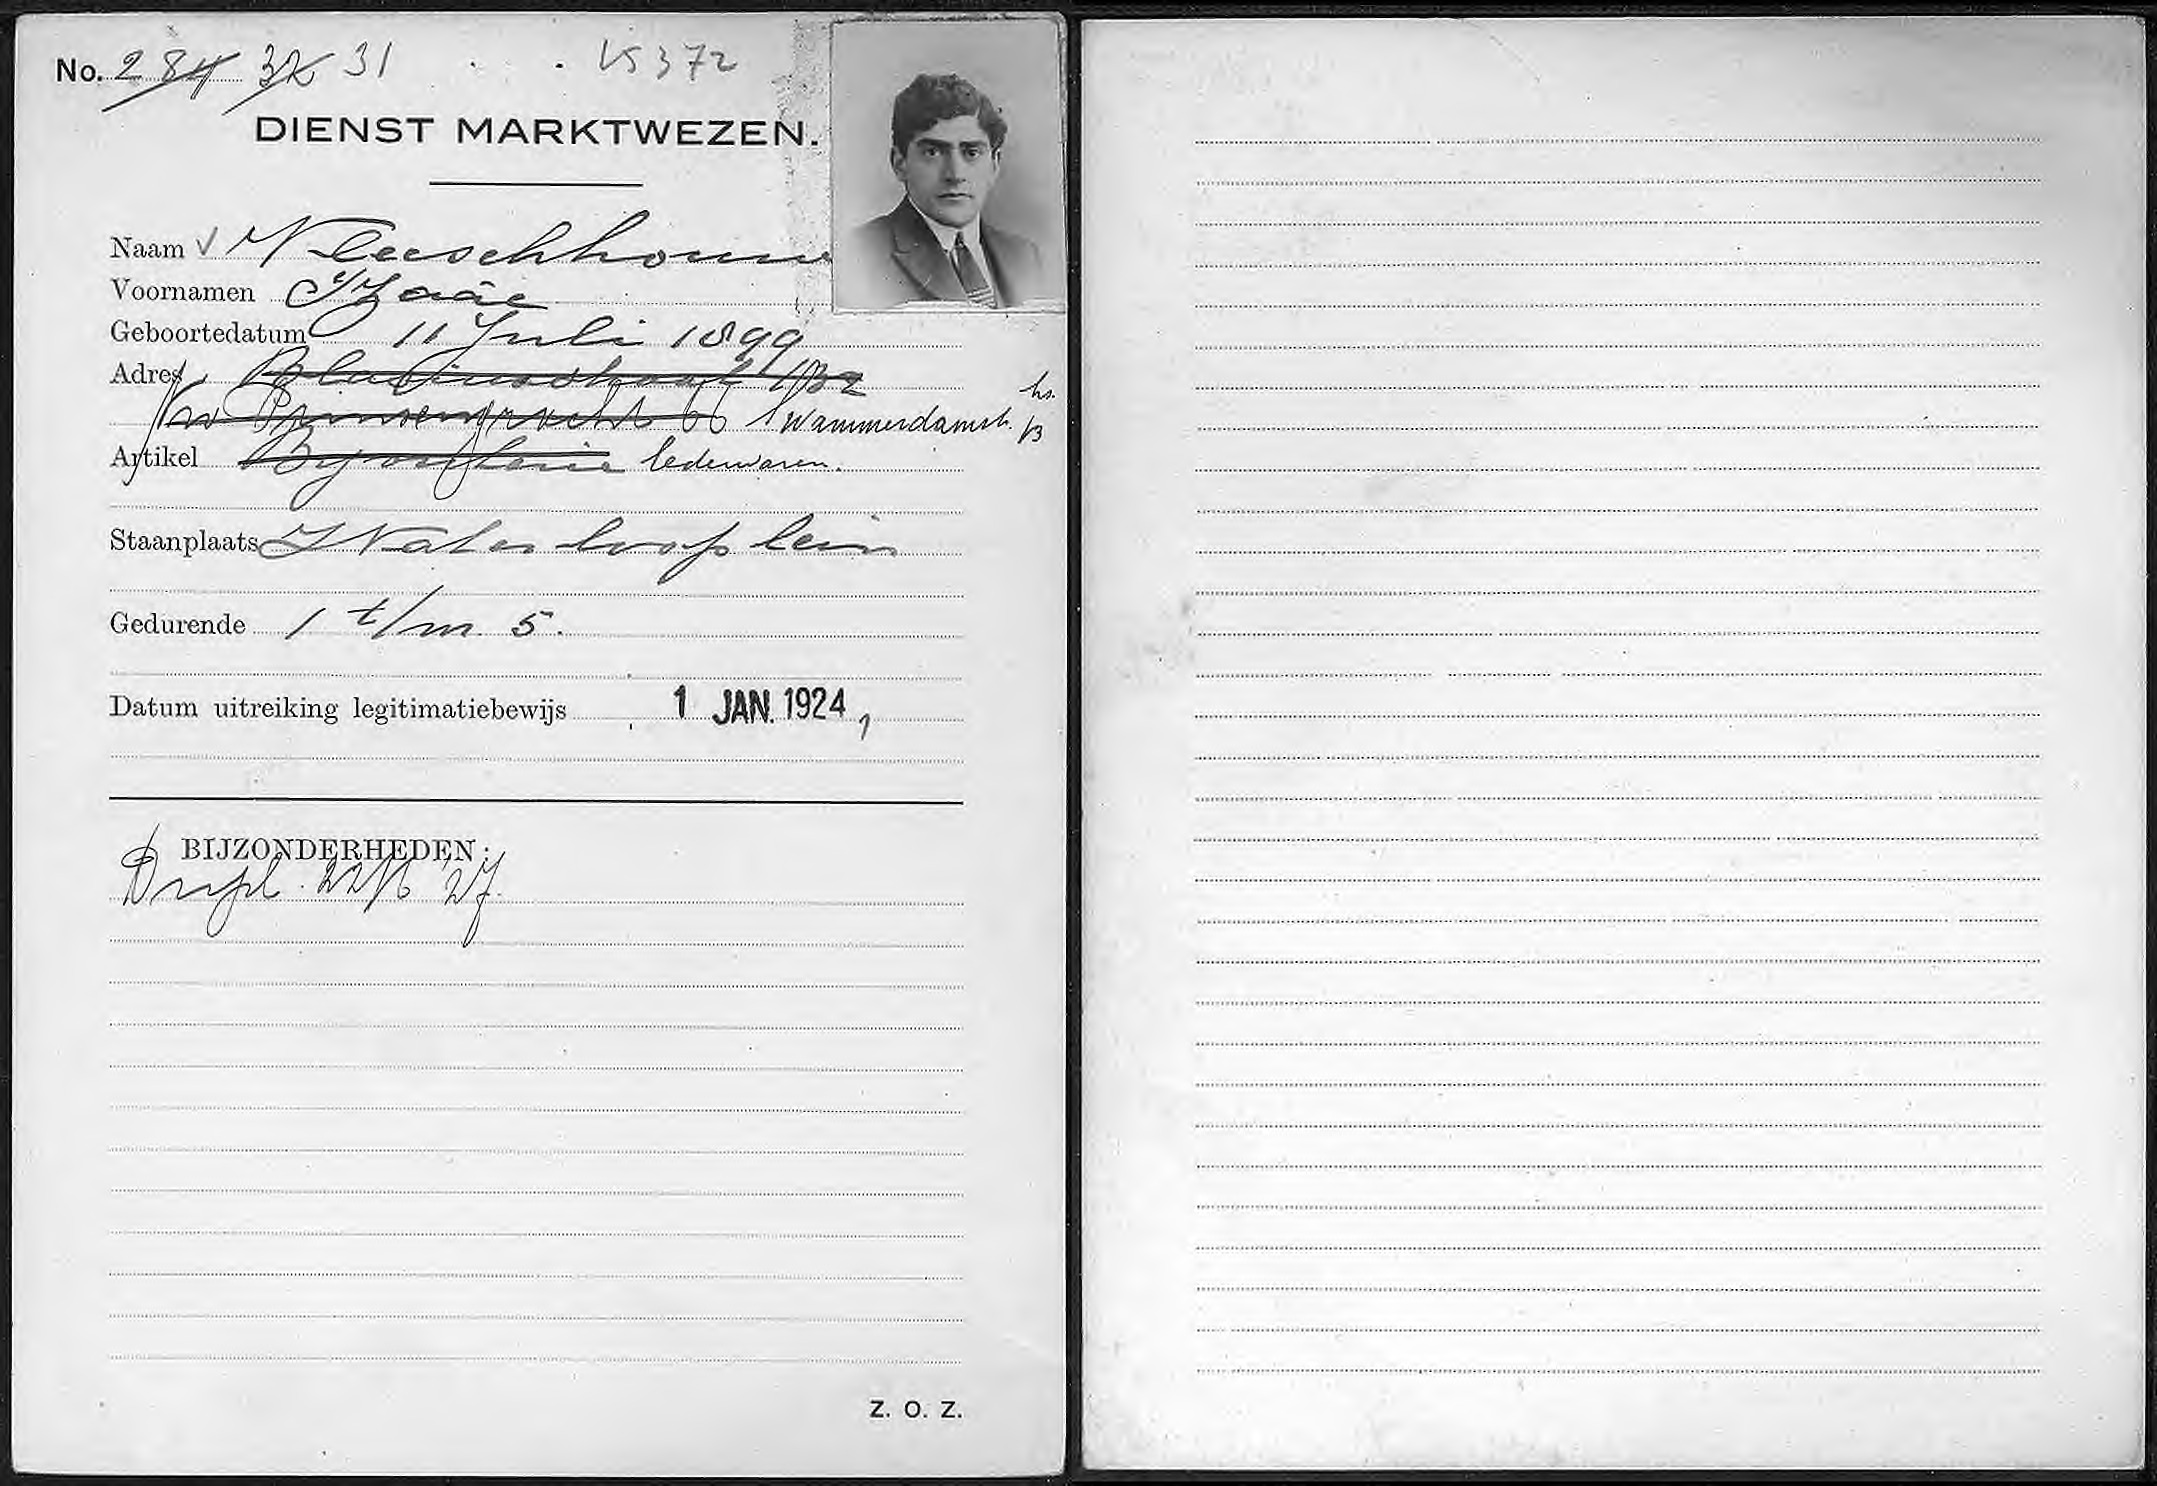 No. 284 32 31 VS 372
DIENST MARKTWEZEN.
Naam Vleeschhouwer
Voornamen Izaäc
Geboortedatum 11 Juli 1899
Adres Blasiusstraat 132
Nw Prinsengracht 66 Swammerdamstr. 13 hs.
Artikel Bijouterie lederwaren.
Staanplaats Waterlooplein
Gedurende 1 t/m 5.
Datum uitreiking legitimatiebewijs 1 JAN. 1924
BIJZONDERHEDEN:
Dupl. 22/6 '27.
Z. O. Z.